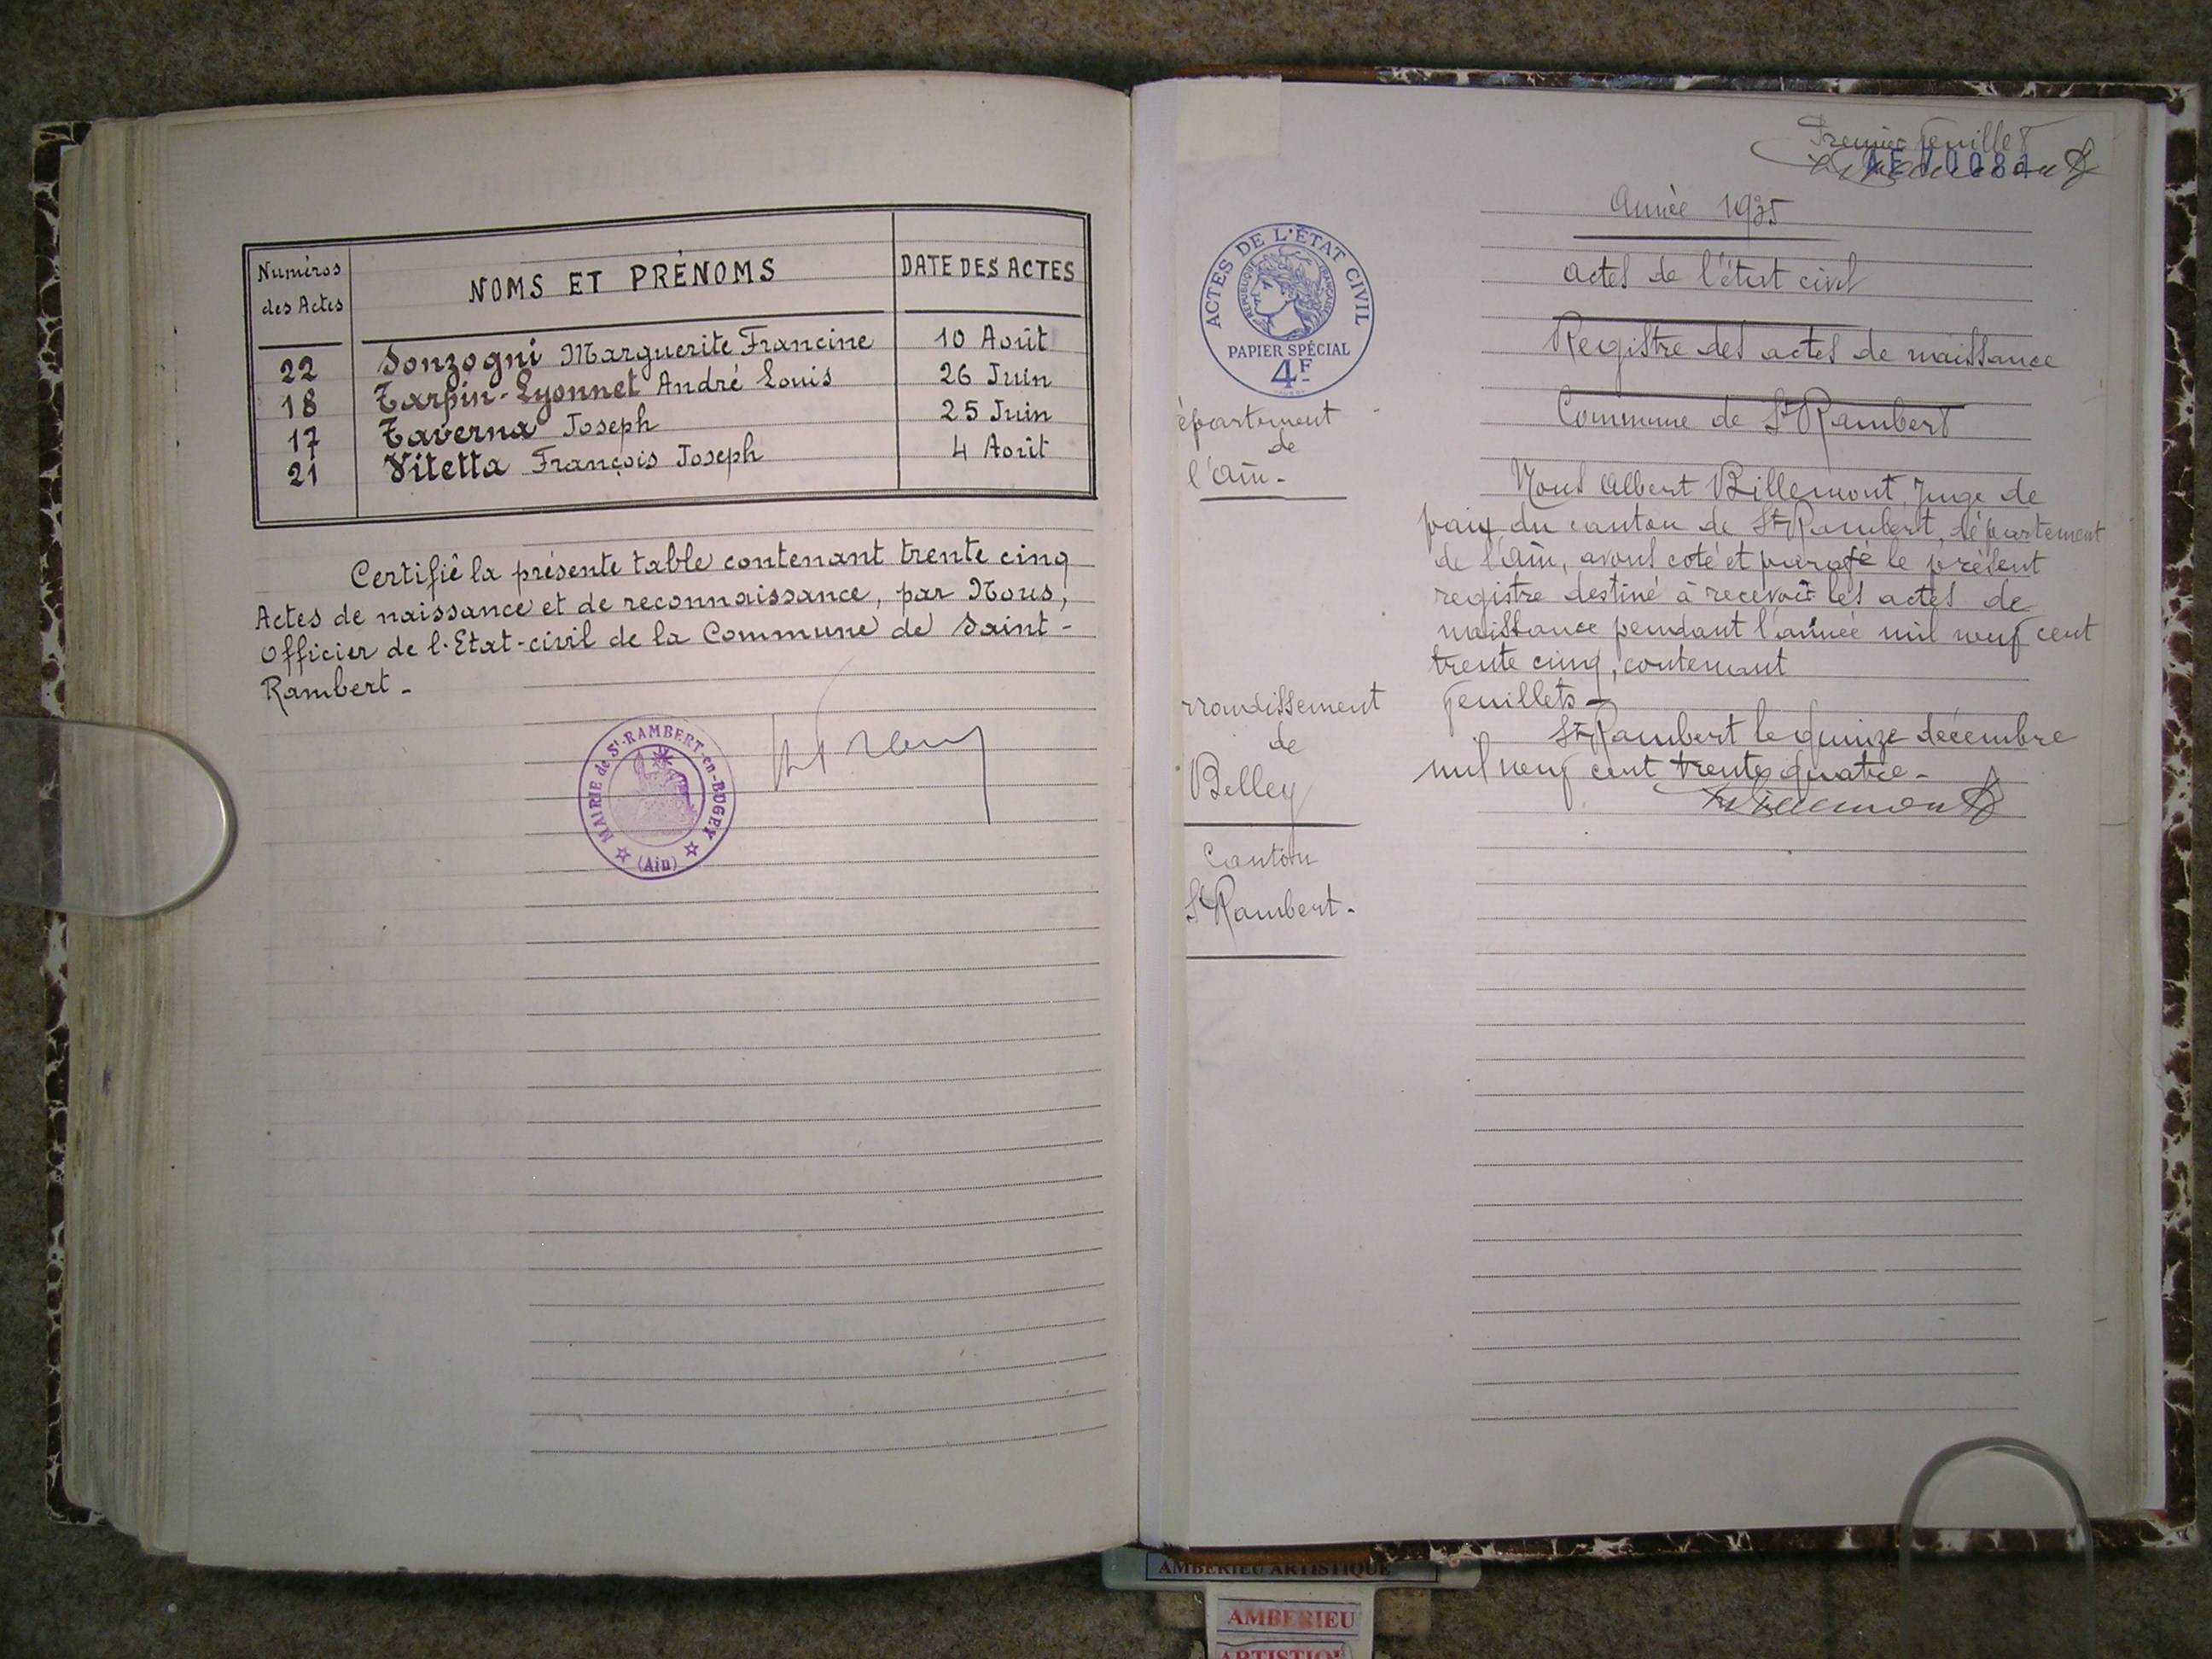 Numéros des Actes
NOMS ET PRÉNOMS
DATE DES ACTES
22 Sonzogni Marguerite Francine 10 Août
18 Tarpin-Lyonnet André Louis 26 Juin
17 Taverna Joseph 25 Juin
21 Vitetta François Joseph 4 Août
Certifié la présente table contenant trente cinq
Actes de naissance et de reconnaissance, par Nous,
Officier de l'Etat-civil de la Commune de Saint-
Rambert-
MAIRIE de St-RAMBERT-en-BUGEY
(Ain)
Premier feuillet
Année 1935
ACTES DE L'ÉTAT CIVIL
RÉPUBLIQUE FRANÇAISE
PAPIER SPÉCIAL
4F
épartement
de
l'Ain-
rrondissement
de
Belley
Canton
St Rambert-
actes de l'état civil
Registre des actes de naissance
Commune de St Rambert
Nous Albert Billemont, Juge de
paix du canton de St Rambert, département
de l'Ain, avons coté et parafé le présent
registre destiné à recevoir les actes de
naissance pendant l'année mil neuf cent
trente cinq, contenant
feuillets-
St Rambert le quinze décembre
mil neuf cent trente quatre-
Billemont
AMBERIEU ARTISTIQUE
AMBERIEU
ARTISTIQUE